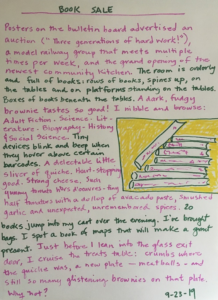 BOOK SALE
Posters on the bulletin board advertised an
auction ("Three generations of hard work!"),
a model railway group that meets multiple
times per week, and the grand opening of the
newest community kitchen. The room is orderly
and full of books, rows of books, spines up, on
the tables and on platforms standing on the tables.
Boxes of books beneath the tables. A dark, fudgy
brownie tastes so good! I nibble and browse:
Adult Fiction - Science - Lit-
erature - Biography - History
and Social Science. Tiny
devices blink and beep when
they hover about certain
barcodes. A delectable little
sliver of quiche. Heart-stopping
good. Strong cheese, ham
tomato hors d'oeuvres - tiny
half tomatoes with a dollop of avocado paste, smushed
garlic and unexpected, unremembered spices. 20
books jump into my cart over the evening. I've bought
bag. I spot a book of maps that will make a great
present. Just before I lean into the glass exit
door, I cruise the treats table: crumbs where
the quiche was, a new plate - meatballs - and
still so many glistening brownies on that plate
Why not?
9-23-19